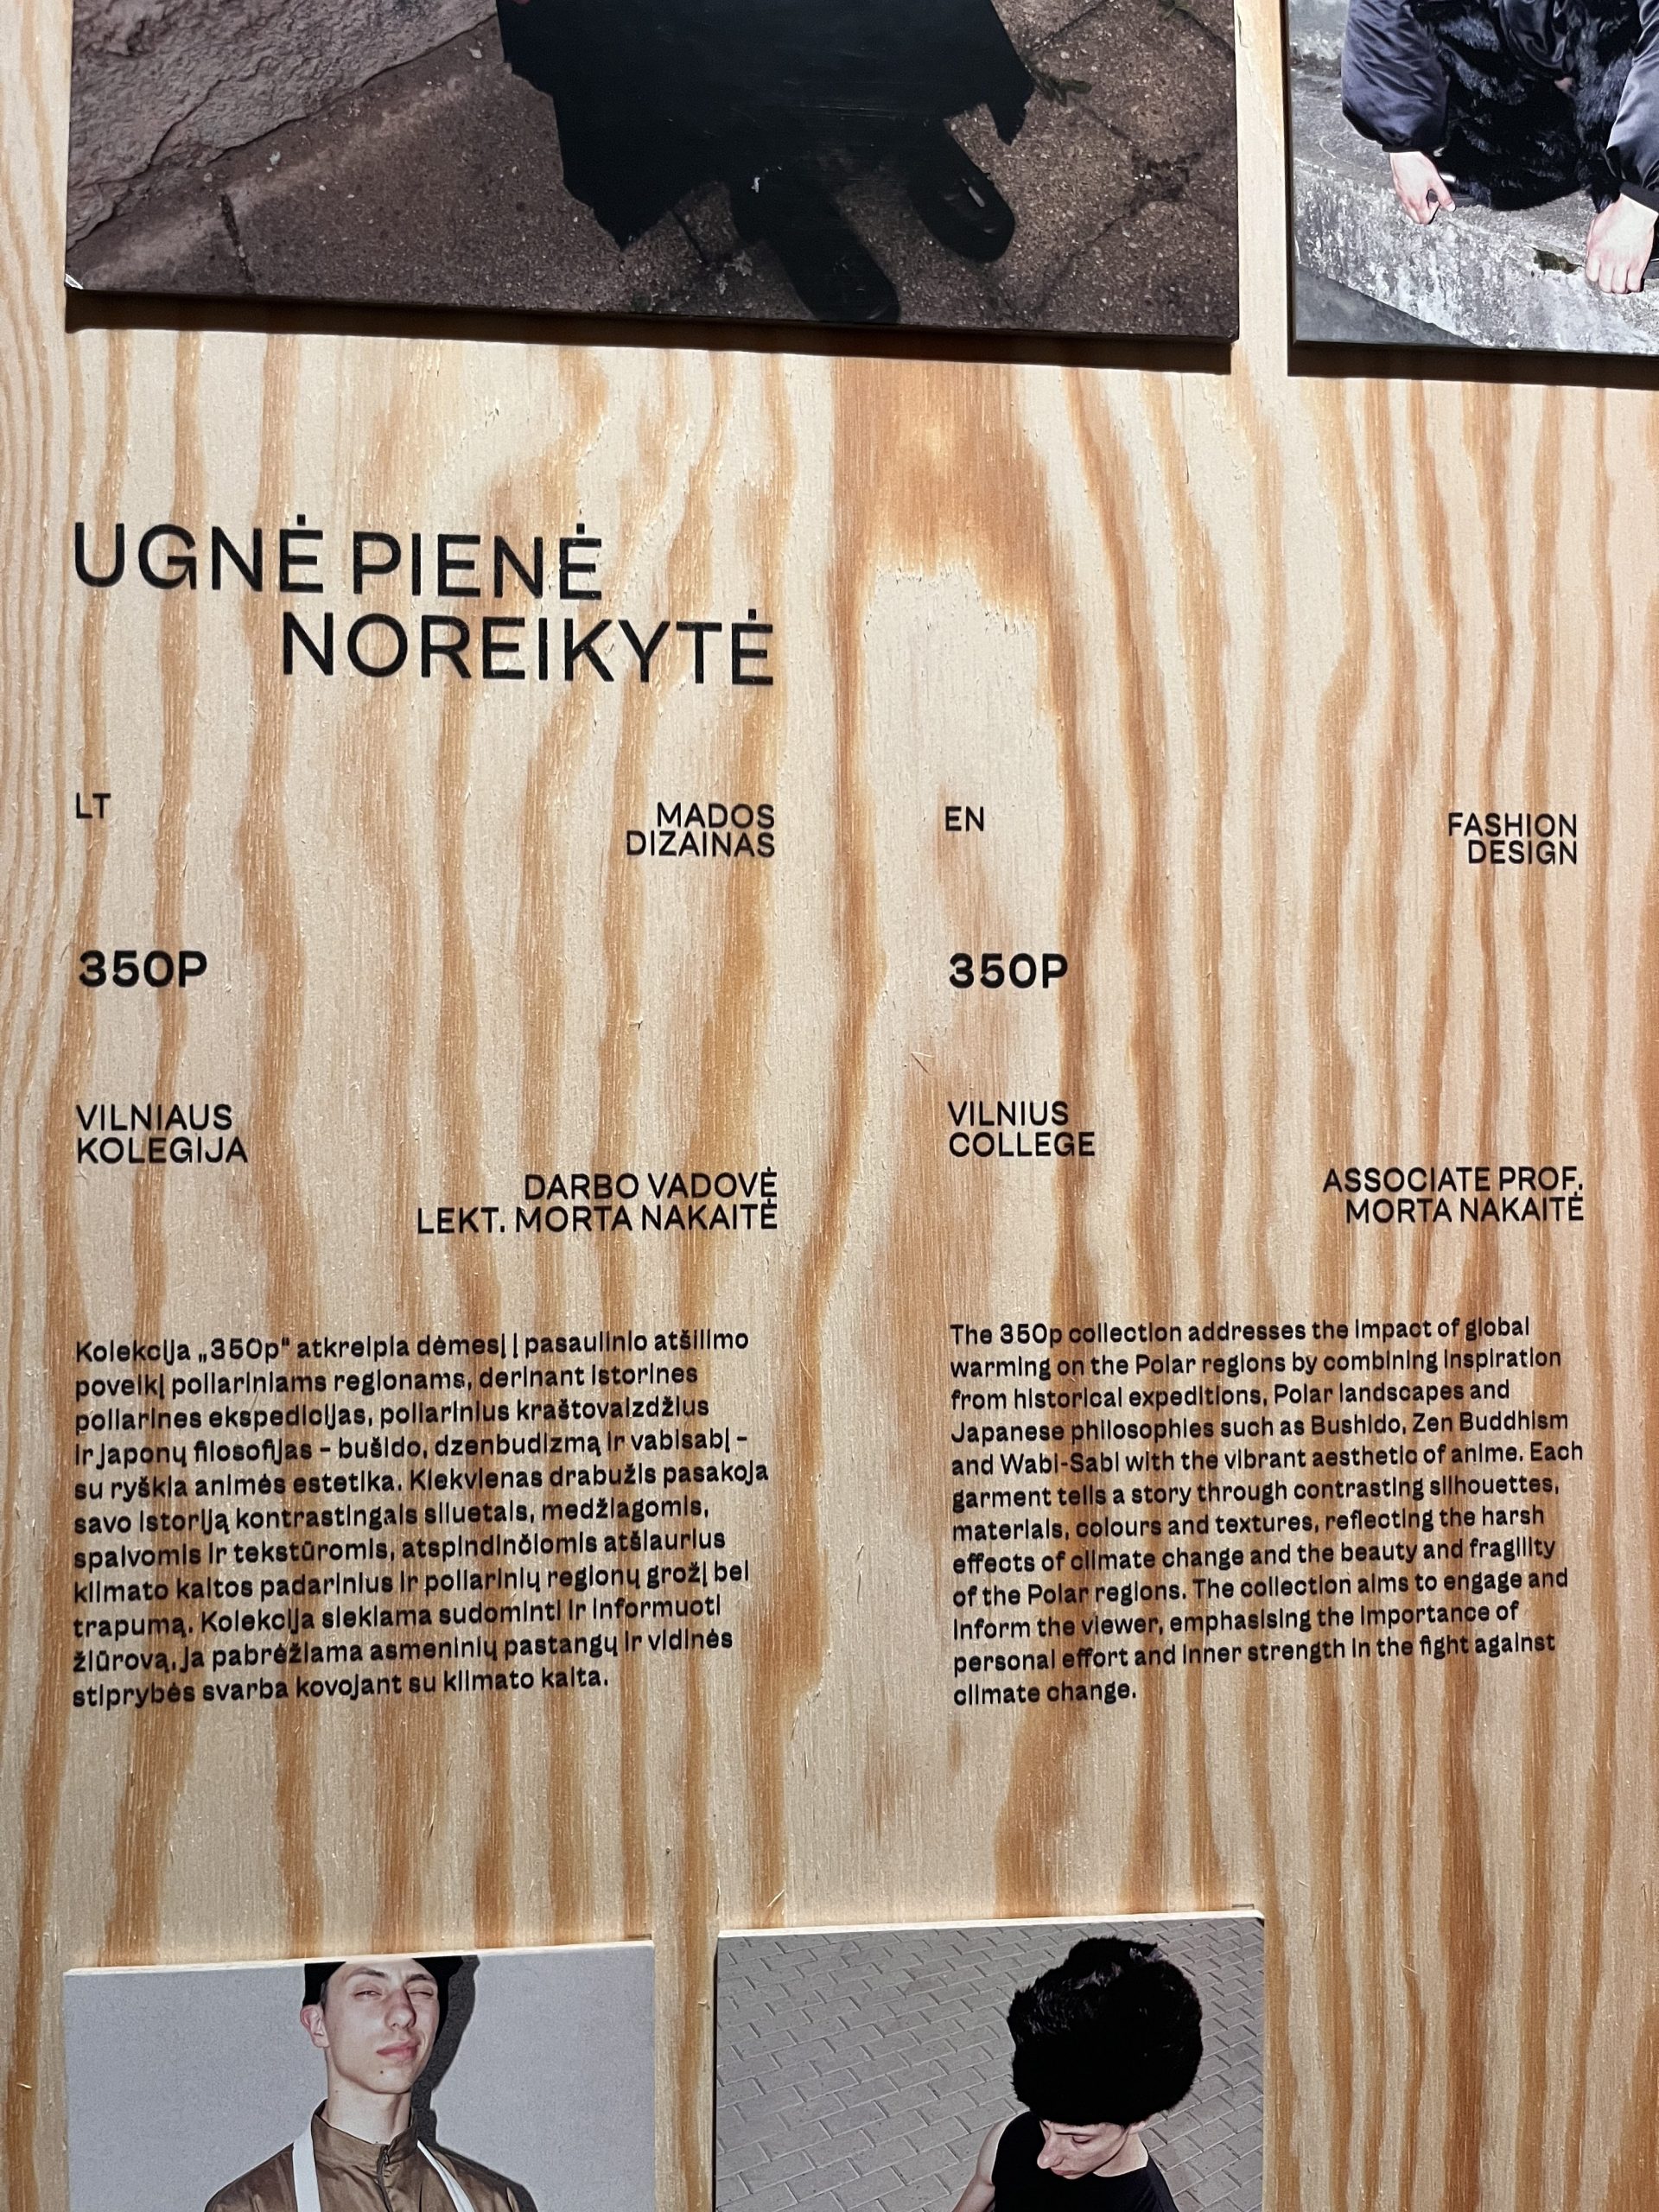 UGNĖ PIENĖ
NOREIKYTĖ
LT
MADOS
DIZAINAS
350P
VILNIAUS
KOLEGIJA
DARBO VADOVĖ
LEKT. MORTA NAKAITĖ
Kolekcija „350p“ atkreipia dėmesį į pasaulinio atšilimo
poveikį poliariniams regionams, derinant istorines
poliarines ekspedicijas, poliarinius kraštovaizdžius
ir japonų filosofijas – bušido, dzenbudizmą ir vabisabį –
su ryškia animės estetika. Kiekvienas drabužis pasakoja
savo istoriją kontrastingais siluetais, medžiagomis,
spalvomis ir tekstūromis, atspindinčiomis atšiaurius
klimato kaitos padarinius ir poliarinių regionų grožį bei
trapumą. Kolekcija siekiama sudominti ir informuoti
žiūrovą, ja pabrėžiama asmeninių pastangų ir vidinės
stiprybės svarba kovojant su klimato kaita.
EN
FASHION
DESIGN
350P
VILNIUS
COLLEGE
ASSOCIATE PROF.
MORTA NAKAITĖ
The 350p collection addresses the impact of global
warming on the Polar regions by combining inspiration
from historical expeditions, Polar landscapes and
Japanese philosophies such as Bushido, Zen Buddhism
and Wabi-Sabi with the vibrant aesthetic of anime. Each
garment tells a story through contrasting silhouettes,
materials, colours and textures, reflecting the harsh
effects of climate change and the beauty and fragility
of the Polar regions. The collection aims to engage and
inform the viewer, emphasising the importance of
personal effort and inner strength in the fight against
climate change.